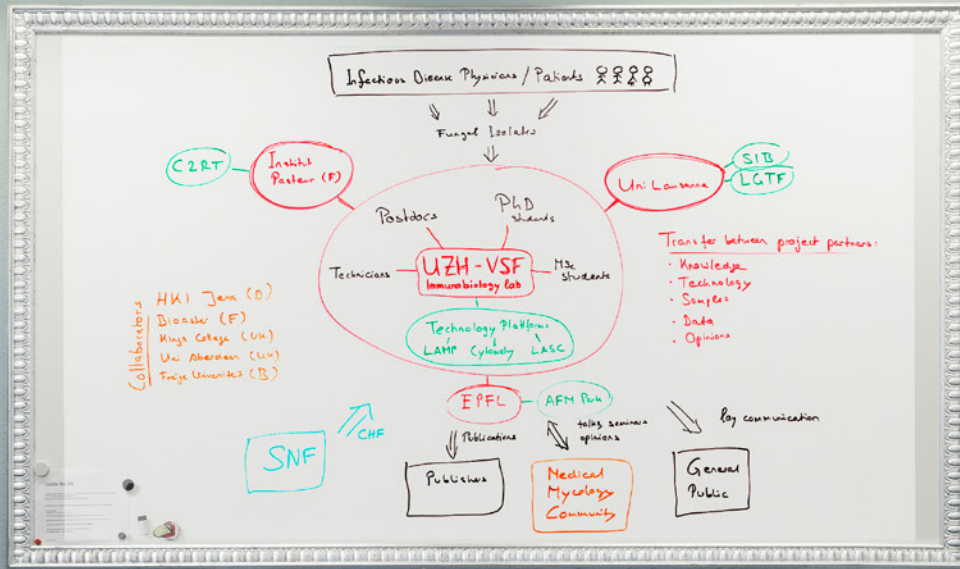 Infectious Disease Physicians / Patients
Fungal Isolates
C2RT
Institut
Pasteur (F)
Uni Lausanne
SIB
LGTF
Postdocs
PhD
students
Technicians
UZH - VSF
Immunobiology lab
MSc
students
Technology Platforms
LAMP Cytometry LASC
Transfer between project partners:
· Knowledge
· Technology
· Samples
· Data
· Opinions
Collaborators
HKI Jena (D)
Bioaster (F)
Kings College (UK)
Uni Aberdeen (UK)
Freije Universiteit (B)
EPFL
AFM
SNF
CHF
Publications
talks seminars
opinions
Lay communication
Publishers
Medical
Mycology
Community
General
Public